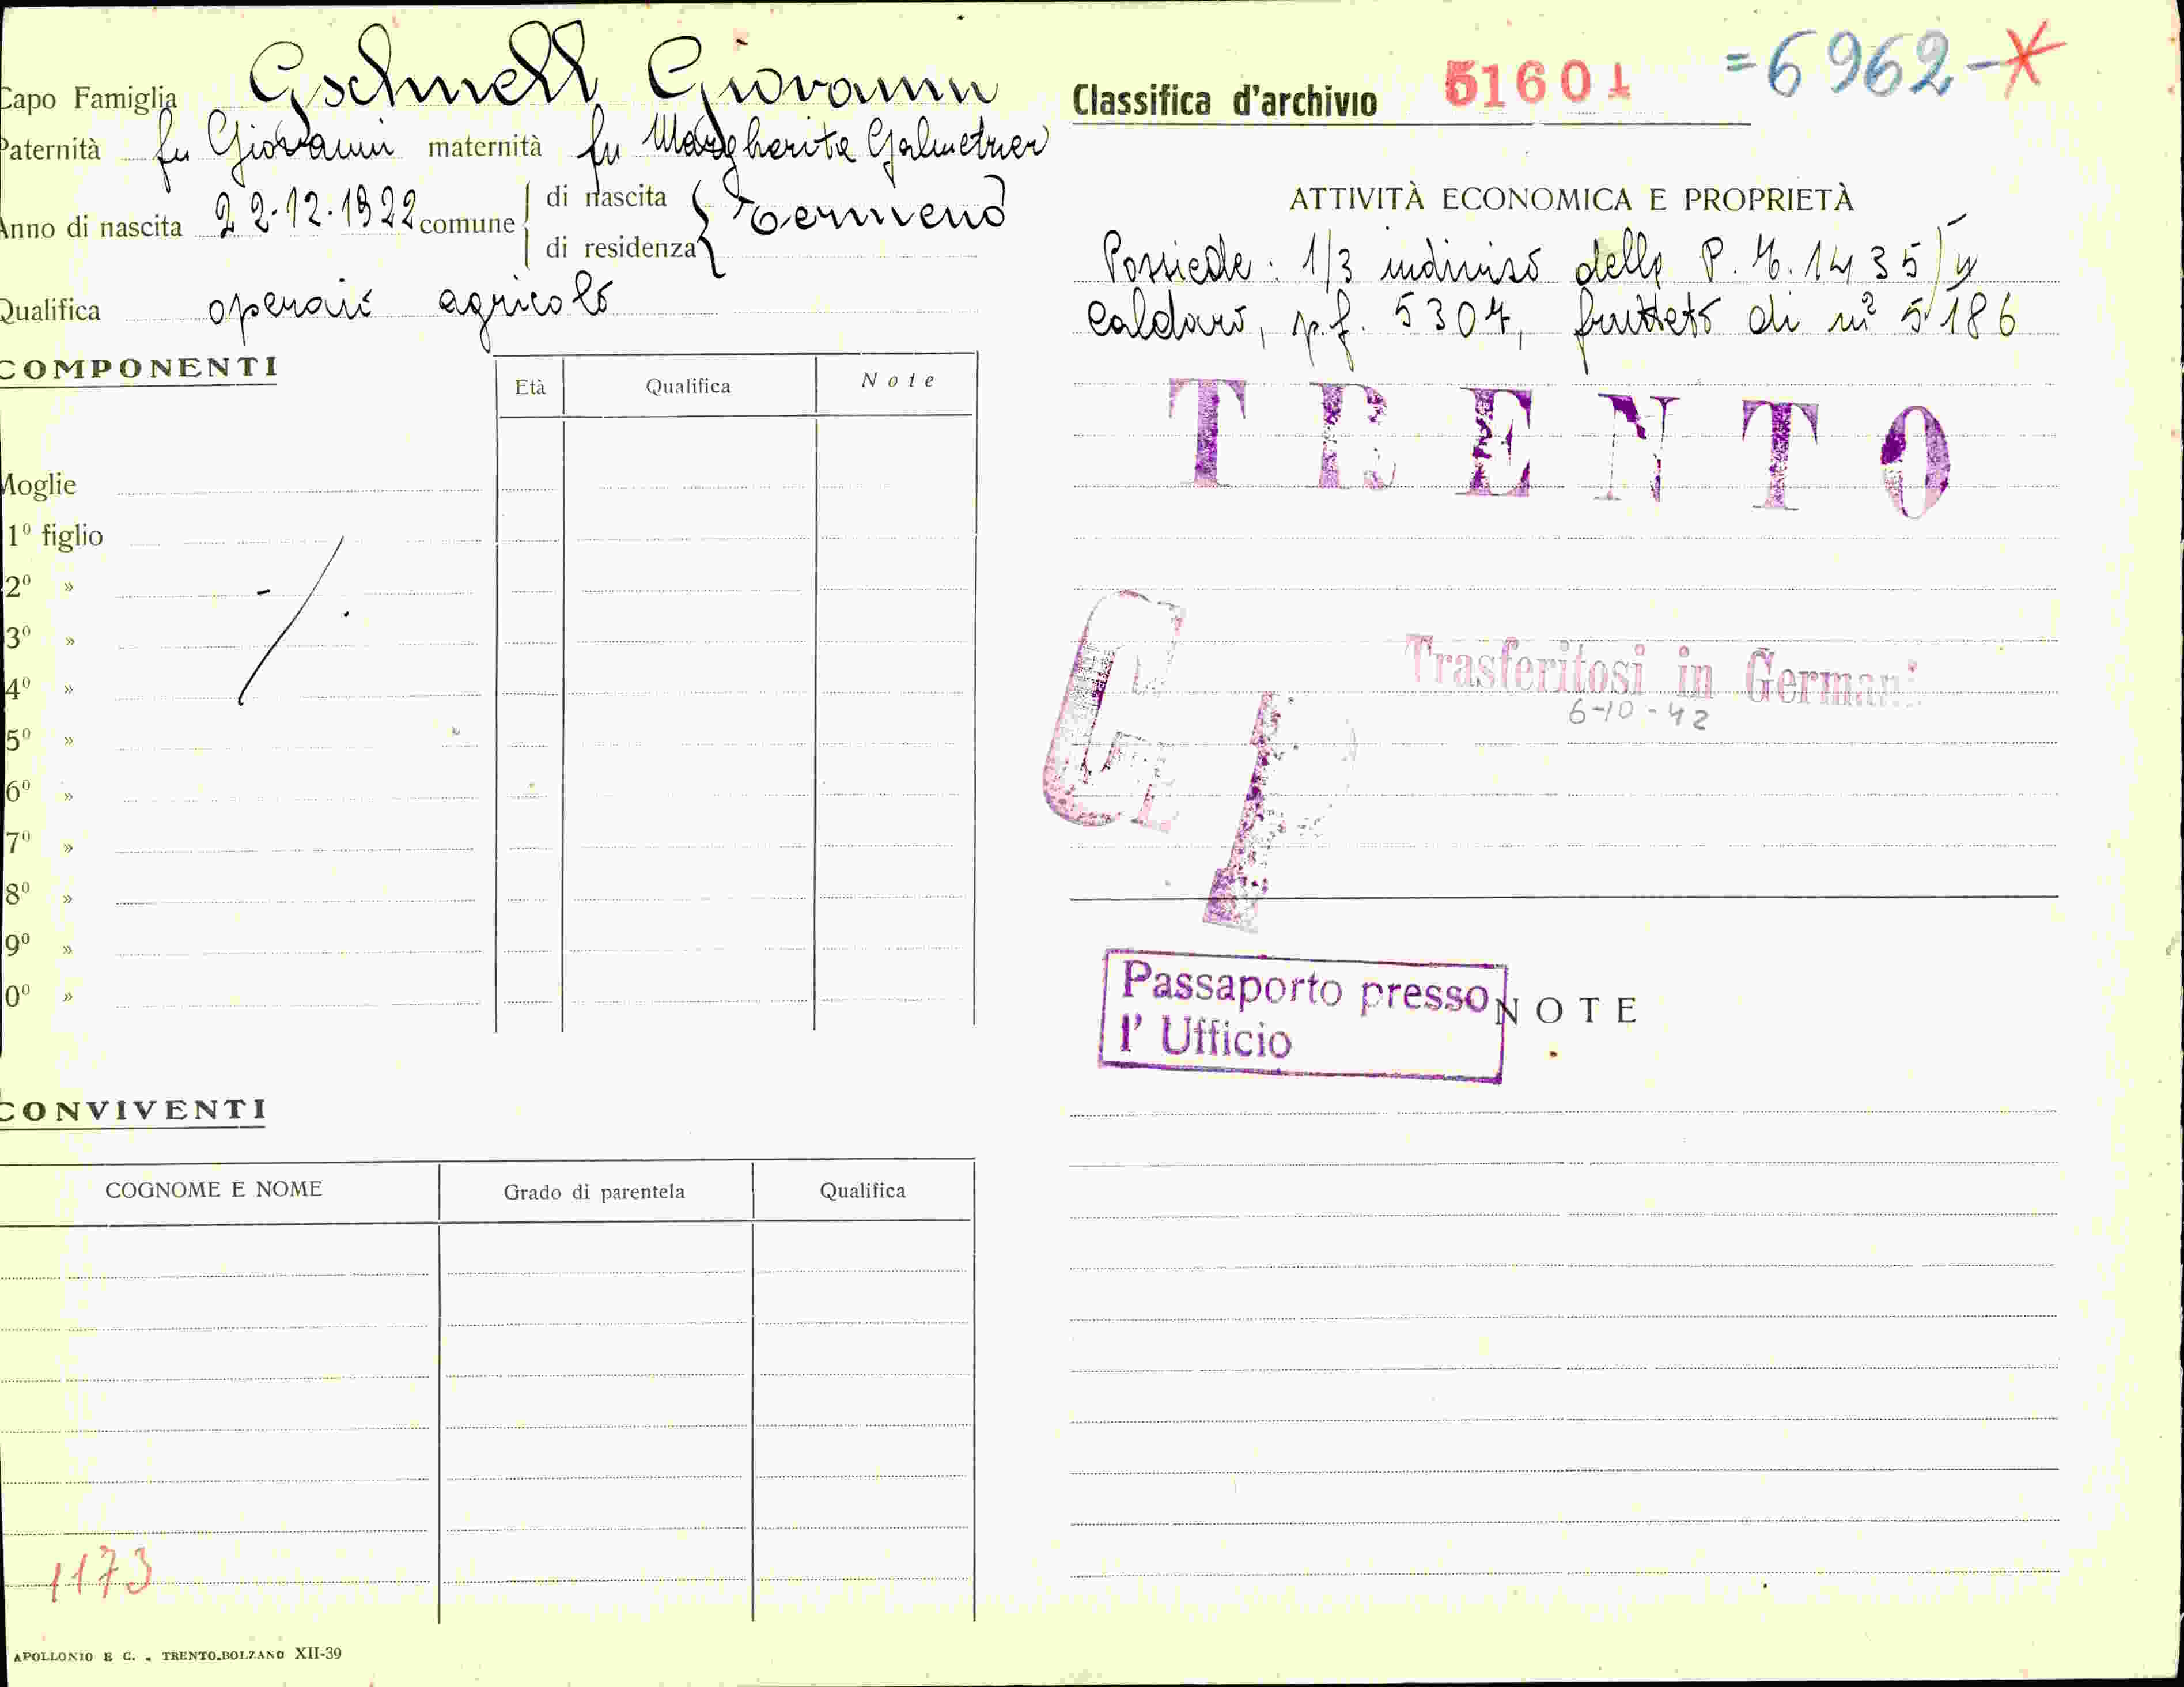 Capo Famiglia Gschnell Giovanni
Paternità fu Giovanni maternità fu Margherita
Anno di nascita 22.12.1922 comune di nascita Termeno
di residenza
Qualifica operaio agricolo
COMPONENTI
Età Qualifica Note
Moglie
1º figlio
2º »
3º »
4º »
5º »
6º »
7º »
8º »
9º »
0º »
CONVIVENTI
COGNOME E NOME Grado di parentela Qualifica
1173
APOLLONIO E C. - TRENTO-BOLZANO XII-39
Classifica d'archivio 51601 =6962-
ATTIVITÀ ECONOMICA E PROPRIETÀ
Possiede: 1/3 indiviso della P. 1435/
Caldaro, p.f. 5304, frutteto di m² 5186
TRENTO
Trasferitosi in German
6-10-42
Passaporto presso
l' Ufficio
NOTE